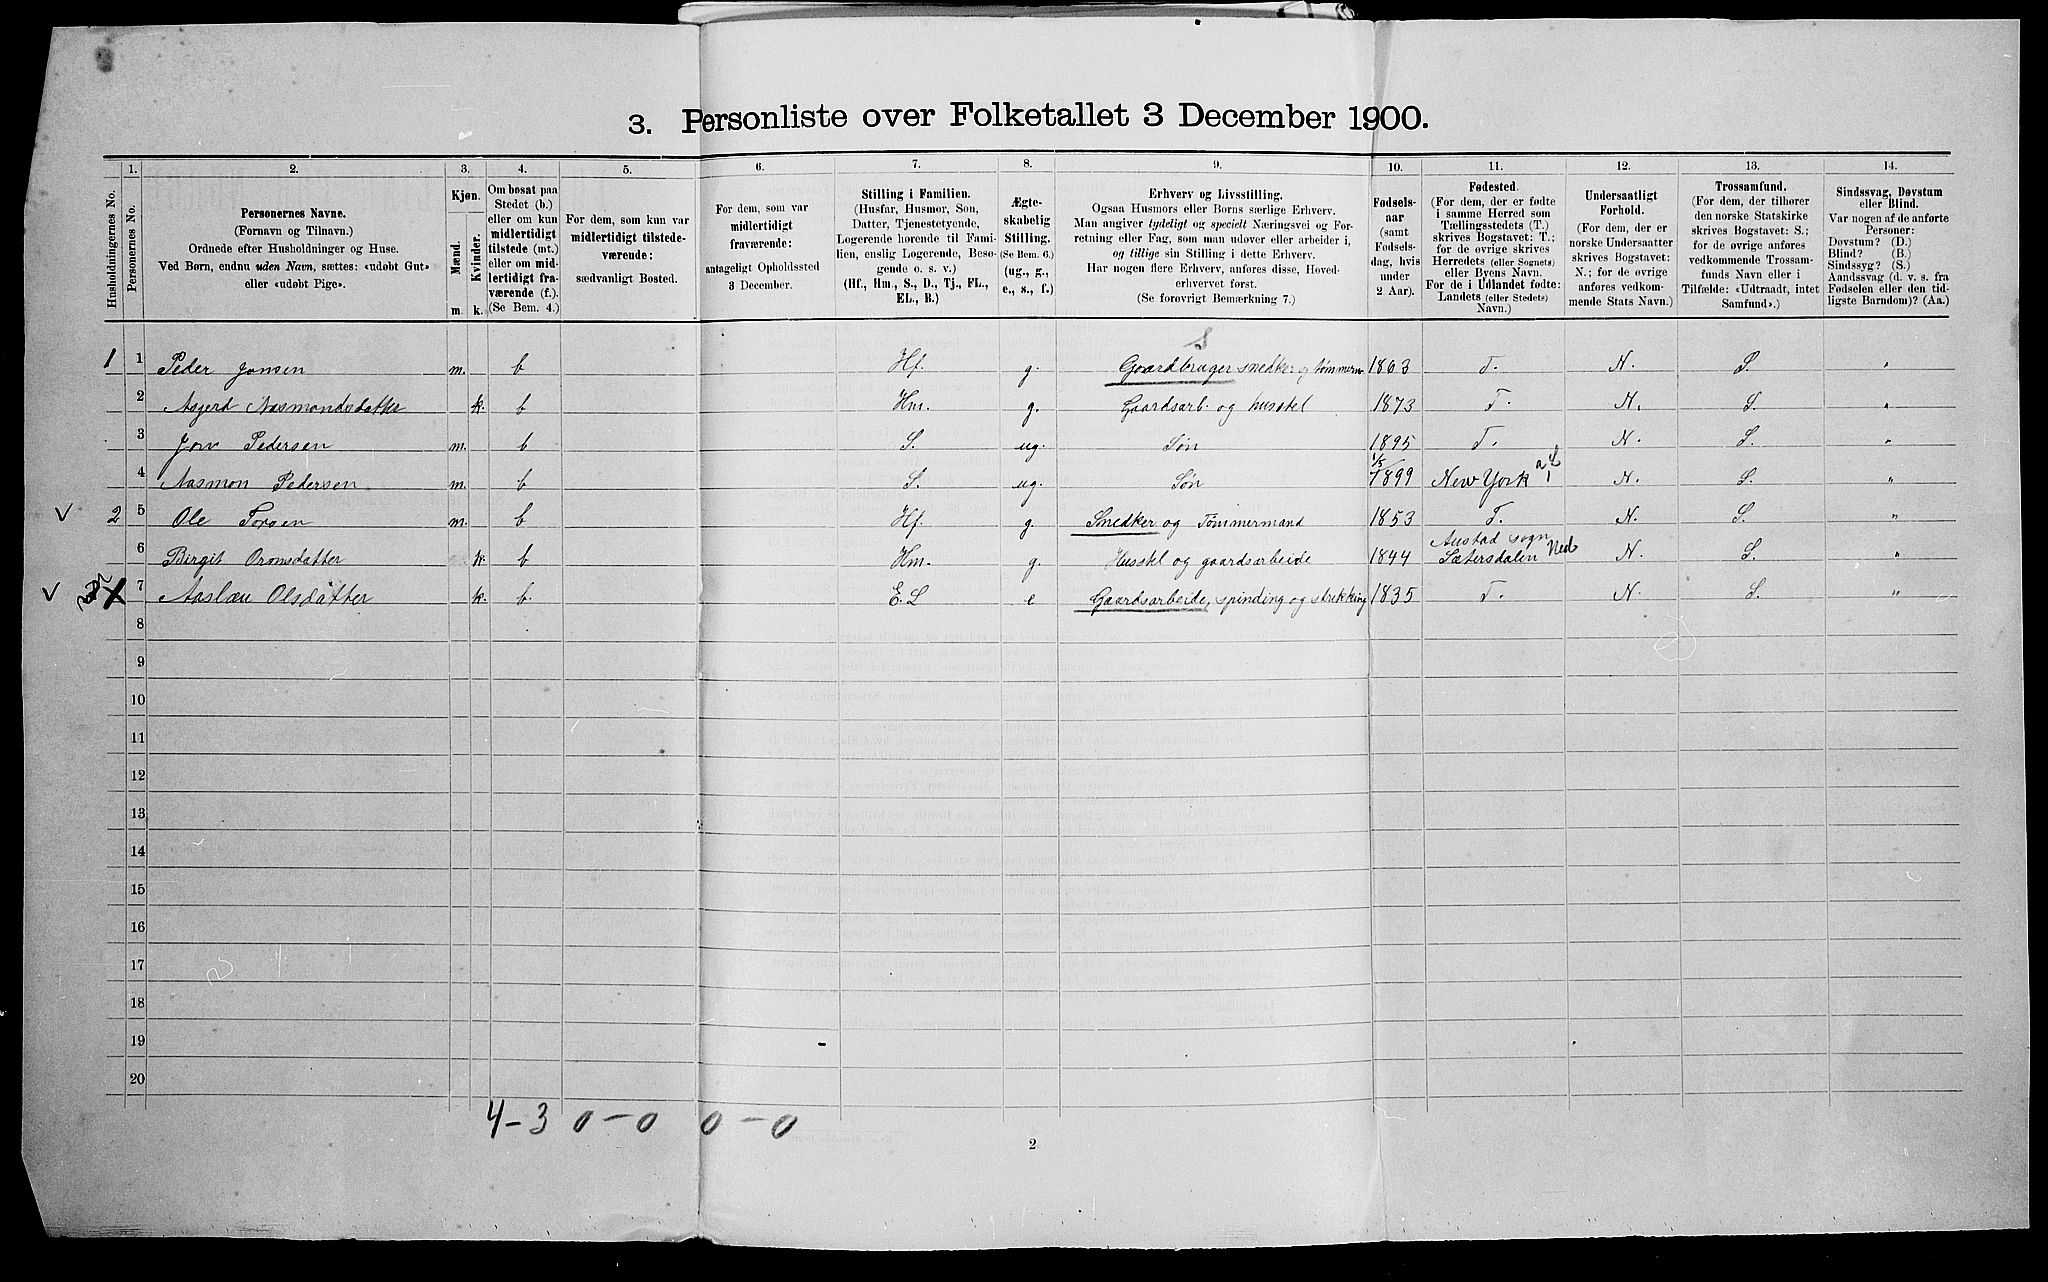 3. Personliste over Folketallet 3 December 1900.
1. 2. 3. 4. 5. 6. 7. 8. 9. 10. 11. 12. 13. 14.
Husholdningernes No.
Personernes No.
Personernes Navne.
(Fornavn og Tilnavn.)
Ordnede efter Husholdninger og Huse.
Ved Børn, endnu uden Navn, sættes: «udøbt Gut»
eller «udøbt Pige».
Kjøn.
Mænd.
Kvinder.
m. k.
Om bosat paa
Stedet (b.)
eller om kun
midlertidigt
tilstede (mt.)
eller om mid-
lertidigt fra-
værende (f.).
(Se Bem. 4.)
For dem, som kun var
midlertidigt tilstede-
værende:
sædvanligt Bosted.
For dem, som var
midlertidigt
fraværende:
antageligt Opholdssted
3 December.
Stilling i Familien.
(Husfar, Husmor, Søn,
Datter, Tjenestetyende,
Logerende hørende til Fami-
lien, enslig Logerende, Besø-
gende o. s. v.)
(Hf., Hm., S., D., Tj., FL.,
EL., B.)
Ægte-
skabelig
Stilling.
(Se Bem. 6.)
(ug., g.,
e., s., f.)
Erhverv og Livsstilling.
Ogsaa Husmors eller Børns særlige Erhverv.
Man angiver tydeligt og specielt Næringsvei og For-
retning eller Fag, som man udøver eller arbeider i,
og tillige sin Stilling i dette Erhverv.
Har nogen flere Erhverv, anføres disse, Hoved-
erhvervet først.
(Se forøvrigt Bemærkning 7.)
Fødsels-
aar
(samt
Fødsels-
dag, hvis
under
2 Aar).
Fødested.
(For dem, der er fødte
i samme Herred som
Tællingsstedets (T.)
skrives Bogstavet: T.;
for de øvrige skrives
Herredets (eller Sognets)
eller Byens Navn.
For de i Udlandet fødte:
Landets (eller Stedets)
Navn.)
Undersaatligt
Forhold.
(For dem, der er
norske Undersaatter
skrives Bogstavet:
N.; for de øvrige
anføres vedkom-
mende Stats Navn.)
Trossamfund.
(For dem, der tilhører
den norske Statskirke
skrives Bogstavet: S.;
for de øvrige anføres
vedkommende Trossam-
funds Navn eller i
Tilfælde: «Udtraadt, intet
Samfund».)
Sindssvag, Døvstum
eller Blind.
Var nogen af de anførte
Personer:
Døvstum? (D.)
Blind? (B.)
Sindssyg? (S.)
Aandssvag (d. v. s. fra
Fødselen eller den tid-
ligste Barndom)? (Aa.)
S
1 1 Peder Jonsen m. b Hf. g. Gaardbruger snedker og tømmerm 1863 T. N. S. "
2 Asgerd Aasmondsdatter k. b Hm. g. Gaardsarb. og husstel 1873 T. N. S. "
3 Jon Pedersen m. b S. ug. Søn 1895 T. N. S. "
4 Aasmon Pedersen m. b S. ug. Søn 1/5 1899 New York N. S. "
v 2 5 Ole Torsen m. b Hf. g. Snedker og Tømmermand 1853 T. N. S. "
6 Birgit Oromsdatter k. b Hm. g. Husstel og gaardsarbeide 1844 Austad sogn Sætersdalen Ned N. S. "
v 7 Aaslau Olsdatter k. b. E.L e Gaardsarbeide, spinding og strikking 1835 T. N. S. "
8
9
10
11
12
13
14
15
16
17
18
19
20
4-3 0-0 0-0
2